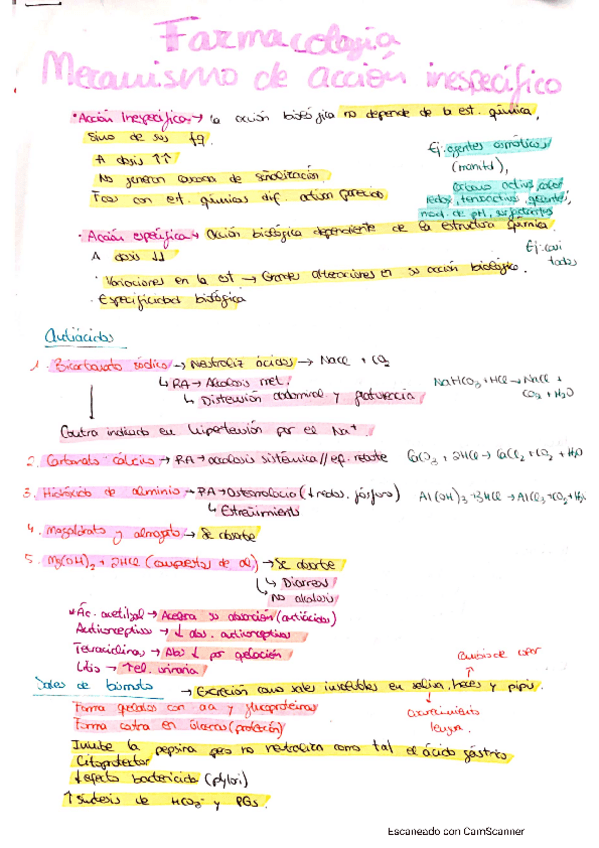 Farmacología
Mecanismo de acción inespecífico
· Acción Inespecífica → la acción biológica no depende de la est. química,
sino de sus fq.
A dosis ↑↑
No generan cascada de señalización.
Fcos con est. químicas dif. actúan parecido
Ej: agentes osmóticos
(manitol),
carbono activo,
redox, tensoactivos,
mod. de pH, surfactantes
· Acción específica → Acción biológica dependiente de la estructura química
A dosis ↓↓
Ej: casi
todos
· Variaciones en la est → Grandes alteraciones en su acción biológica.
· Especificidad biológica
Antiácidos
1. Bicarbonato sódico → Neutraliz ácidos → NaCl + CO2
↳ RA → Alcalosis met.
↳ Distensión abdominal y flatulencia
NaHCO3 + HCl → NaCl +
CO2 + H2O
Contraindicado en hipertensión por el Na+.
2. Carbonato cálcico → RA → alcalosis sistémica // ef. rebote
CaCO3 + 2HCl → CaCl2 + CO2 + H2O
3. Hidróxido de aluminio → RA → Osteomalacia (↓ reabs. fósforo)
↳ Estreñimiento
Al(OH)3 + 3HCl → AlCl3 + CO2 + H2O
4. Magaldrato y almagato → Se absorbe
5. Mg(OH)2 + 2HCl (compuestos de al.) → Se absorbe
↳ Diarreas
↳ No alcalosis
Ác. acetilsal → Acelera su absorción (antiácidos)
Anticonceptivos → ↓ abs. anticonceptivos
Tetraciclinas → Abs ↓ por quelación
Litio → ↑ el. urinaria
Sales de bismuto → Excreción como sales insolubles en saliva, heces y pipí.
Cambio de color
Oscurecimiento
lengua.
Forma quelatos con aa y glucoproteínas
Forma costra en úlceras (protección)
Inhibe la pepsina pero no neutraliza como tal el ácido gástrico
Citoprotector
↓ efecto bactericida (pylori)
↑ Síntesis de HCO3- y PGs.
Escaneado con CamScanner